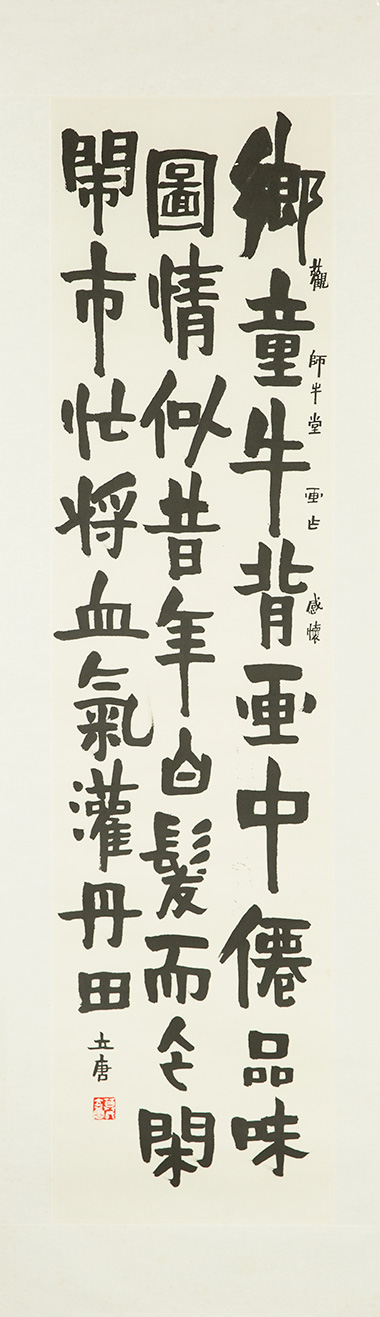 鄉童牛背画中僊品味
觀 師牛堂 画 感懷
圖情似昔年白髮而今閑
閙市忙将血氣灌丹田
立唐